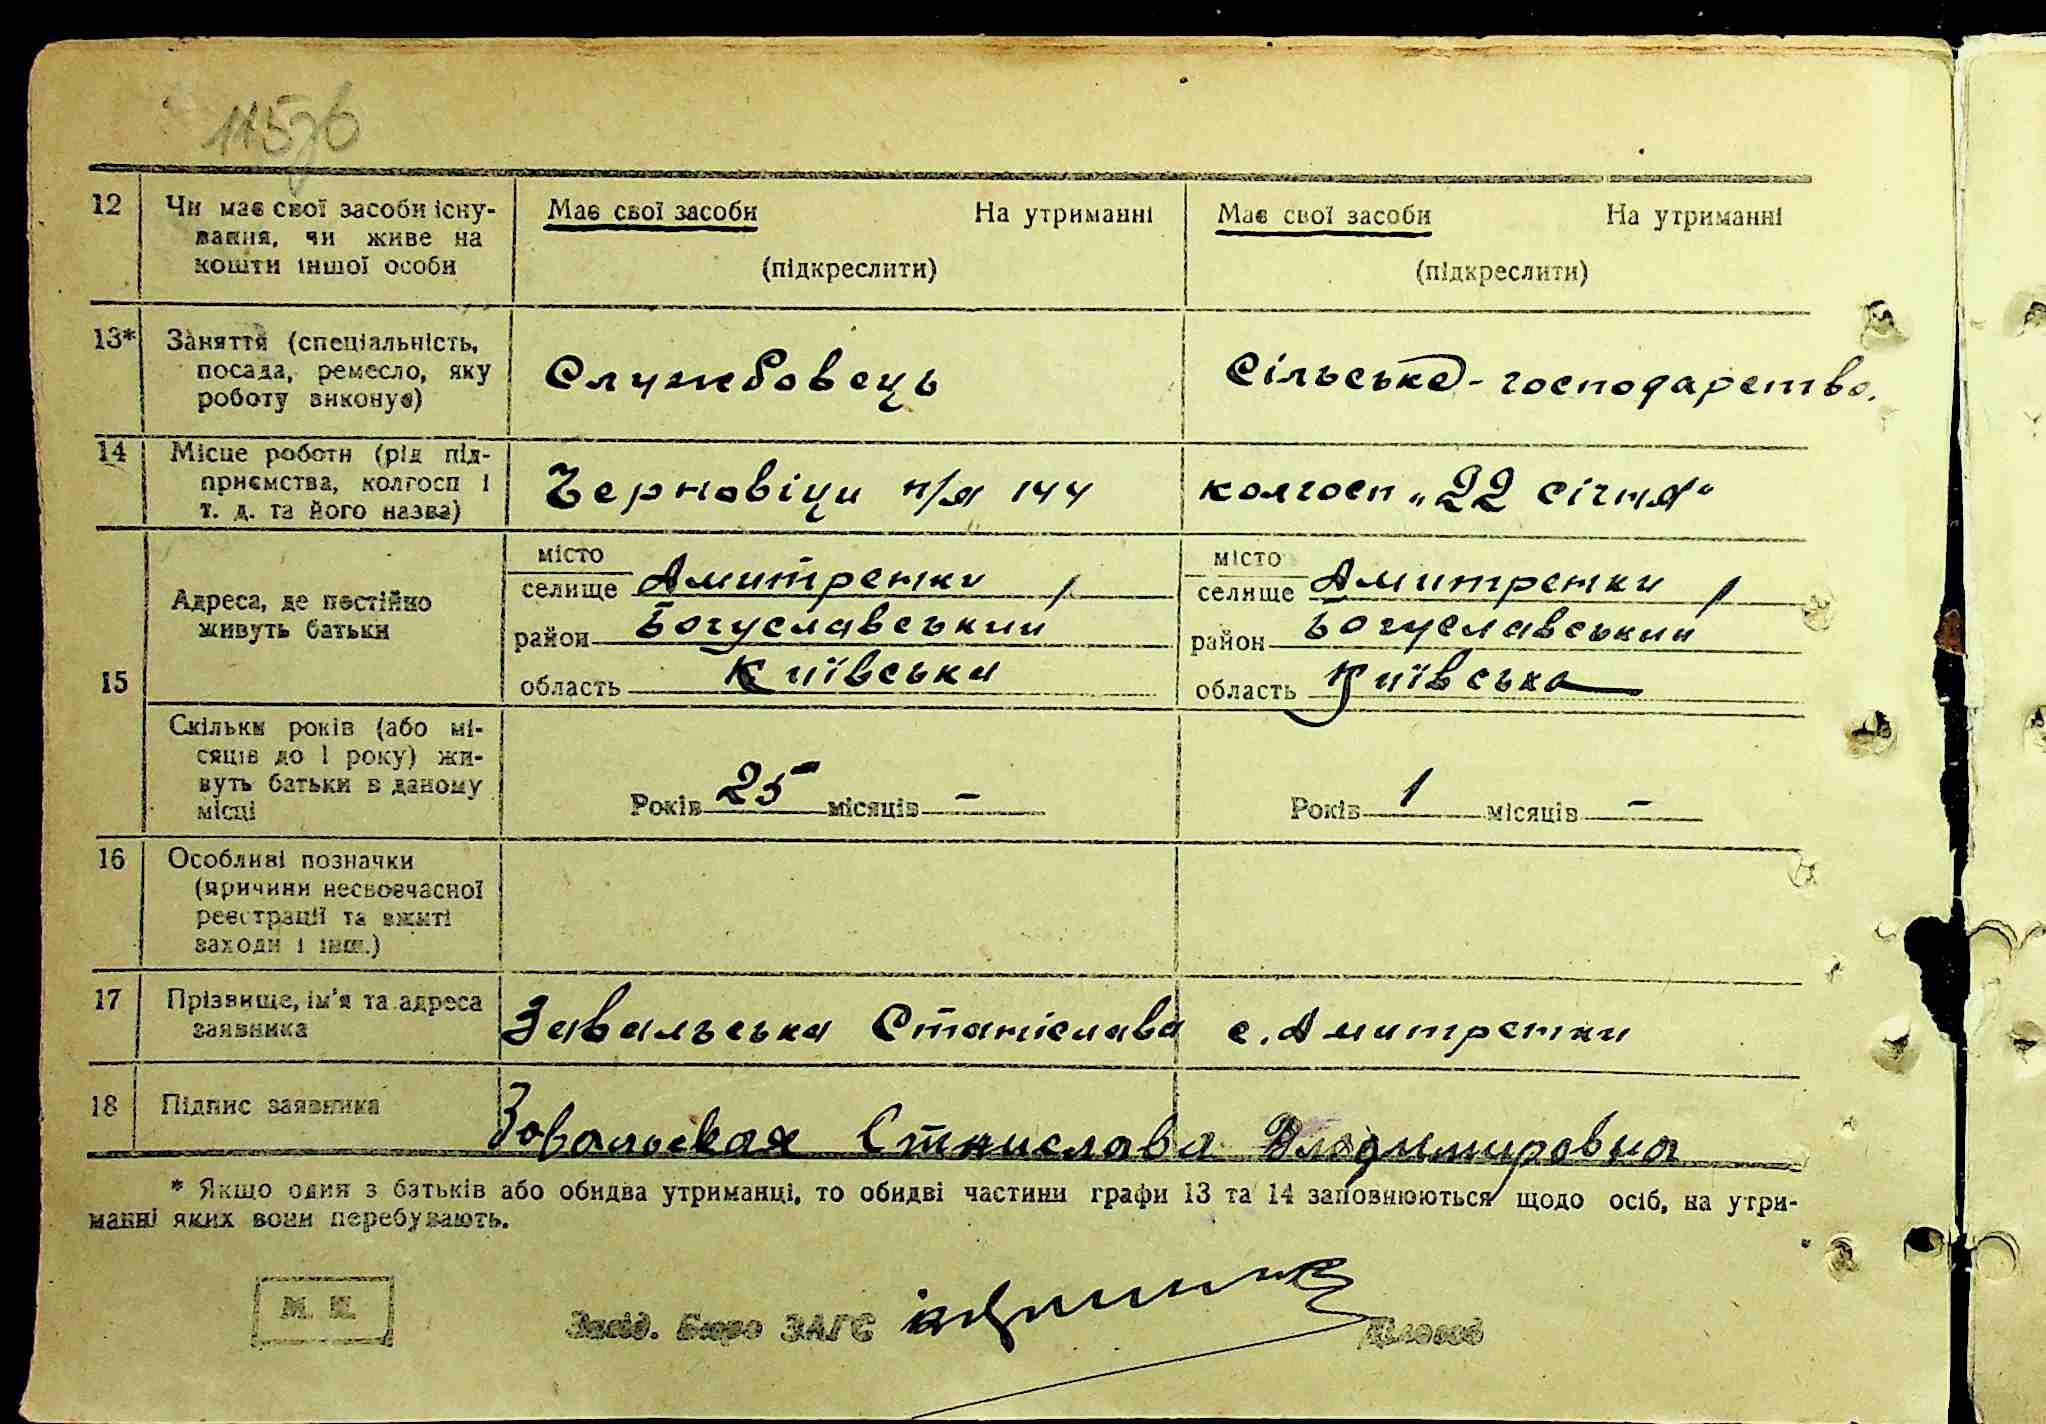 12 Чи має свої засоби існу-
вання, чи живе на
кошти іншої особи
Має свої засоби На утриманні
(підкреслити)
Має свої засоби На утриманні
(підкреслити)
13* Заняття (спеціальність,
посада, ремесло, яку
роботу виконує)
Службовець
Сільське-господарство.
14 Місце роботи (рід під-
приємства, колгосп і
т. д. та його назва)
Черновіци п/я 144
колгосп „22 січня"
15
Адреса, де постійно
живуть батьки
місто
селище Дмитренки,
район Богуславський
область Київська
місто
селище Дмитренки,
район Богуславський
область Київська
Скільки років (або мі-
сяців до 1 року) жи-
вуть батьки в даному
місці
Років 25 місяців –
Років 1 місяців –
16 Особливі позначки
(причини несвоєчасної
реєстрації та вжиті
заходи і інш.)
17 Прізвище, ім'я та адреса
заявника
Завальська Станіслава с. Дмитренки
18 Підпис заявника
Зовальская Стнислава Владимировна
* Якщо один з батьків або обидва утриманці, то обидві частини графи 13 та 14 заповнюються щодо осіб, на утри-
манні яких вони перебувають.
М. П.
Завід. Бюро ЗАГС
Діловод